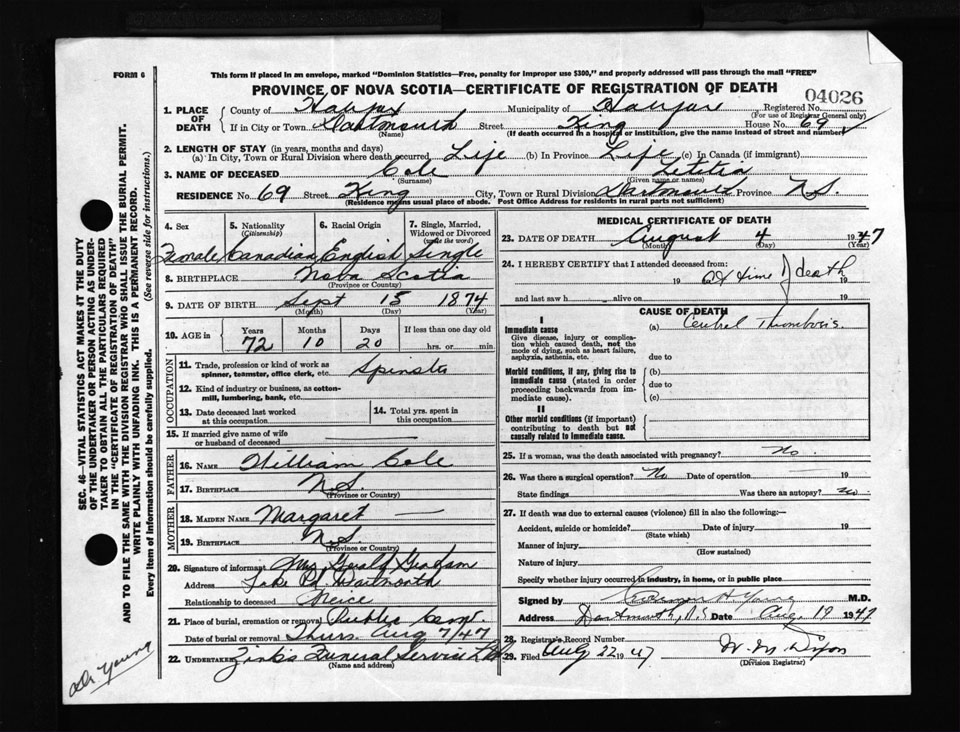 FORM 6
This form if placed in an envelope, marked "Dominion Statistics—Free, penalty for improper use $300," and properly addressed will pass through the mail "FREE"
PROVINCE OF NOVA SCOTIA—CERTIFICATE OF REGISTRATION OF DEATH
04026
1. PLACE OF DEATH
County of Halifax Municipality of Halifax Registered No.
(For use of Registrar General only)
If in City or Town Dartmouth Street King House No. 69
(Name) (If death occurred in a hospital or institution, give the name instead of street and number)
2. LENGTH OF STAY (in years, months and days)
(a) In City, Town or Rural Division where death occurred Life (b) In Province Life (c) In Canada (if immigrant)
3. NAME OF DECEASED Cole Letitia
(Surname) (Given name or names)
RESIDENCE No 69 Street King City, Town or Rural Division Dartmouth Province N.S.
(Residence means usual place of abode. Post Office Address for residents in rural parts not sufficient)
4. Sex 5. Nationality (Citizenship) 6. Racial Origin 7. Single, Married, Widowed or Divorced (write the word)
Female Canadian English Single
8. BIRTHPLACE Nova Scotia
(Province or Country)
9. DATE OF BIRTH Sept 15 1874
(Month) (Day) (Year)
10. AGE in Years Months Days If less than one day old
72 10 20 hrs. or min.
OCCUPATION
11. Trade, profession or kind of work as spinner, teamster, office clerk, etc. Spinster
12. Kind of industry or business, as cotton-mill, lumbering, bank, etc.
13. Date deceased last worked at this occupation
14. Total yrs. spent in this occupation
15. If married give name of wife or husband of deceased
FATHER
16. NAME William Cole
17. BIRTHPLACE N.S.
(Province or Country)
MOTHER
18. MAIDEN NAME Margaret —
19. BIRTHPLACE N.S.
(Province or Country)
20. Signature of informant Mrs Gerald Graham
Address Lake Rd Dartmouth
Relationship to deceased Neice
21. Place of burial, cremation or removal Public Cem.
Date of burial or removal Thurs. Aug 7/47
22. UNDERTAKER Zink's Funeral Service Ltd
(Name and address)
MEDICAL CERTIFICATE OF DEATH
23. DATE OF DEATH August 4 1947
(Month) (Day) (Year)
24. I HEREBY CERTIFY that I attended deceased from:
19 at time of death 19
and last saw h alive on 19
CAUSE OF DEATH
I
Immediate cause
Give disease, injury or complication which caused death, not the mode of dying, such as heart failure, asphyxia, asthenia, etc.
(a) Cerebral Thrombosis.
due to
Morbid conditions, if any, giving rise to immediate cause (stated in order proceeding backwards from immediate cause).
(b)
due to
(c)
II
Other morbid conditions (if important) contributing to death but not causally related to immediate cause.
25. If a woman, was the death associated with pregnancy? No.
26. Was there a surgical operation? No Date of operation 19
State findings Was there an autopsy? no.
27. If death was due to external causes (violence) fill in also the following:—
Accident, suicide or homicide? Date of injury 19
(State which)
Manner of injury
(How sustained)
Nature of injury
Specify whether injury occurred in industry, in home, or in public place
Signed by H Young M.D.
Address Dartmouth, N.S. Date Aug. 19 1947
28. Registrar's Record Number
29. Filed Aug 22 1947 W. M. Dixon
(Division Registrar)
SEC. 46—VITAL STATISTICS ACT MAKES IT THE DUTY OF THE UNDERTAKER OR PERSON ACTING AS UNDERTAKER TO OBTAIN ALL THE PARTICULARS REQUIRED IN THE "CERTIFICATE OF REGISTRATION OF DEATH" AND TO FILE THE SAME WITH THE DIVISION REGISTRAR WHO SHALL ISSUE THE BURIAL PERMIT.
WRITE PLAINLY WITH UNFADING INK. THIS IS A PERMANENT RECORD.
Every item of information should be carefully supplied. (See reverse side for instructions.)
Dr Young